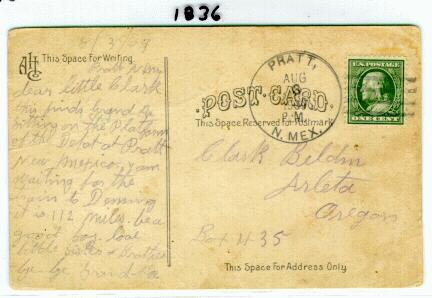 1836
8/3/09
Pratt N M
AHC
This Space for Writing.
dear little Clark
this finds grand Pa
sitting on the Platform
of the Depot at Pratt
New Mexico, I am
waiting for the
train to Deming
it is 112 miles. be a
good boy. love
little sister & Brother
bye bye grand Pa
PRATT,
AUG
P.M.
N. MEX.
POST CARD.
This Space Reserved for Postmark
U.S. POSTAGE
ONE CENT
Clark Beldin
Arleta
Oregon
Box 435
This Space for Address Only.